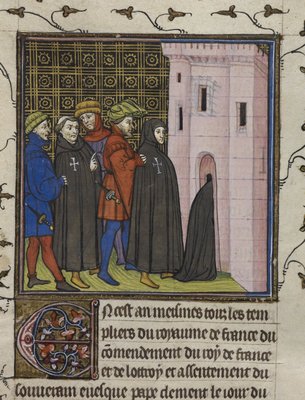 En cest an mesmes touz les tem
pliers du royaume de france du
cõmendement du roy de france
et de lottroy et assentement du
souverain evesque pape clement le iour du